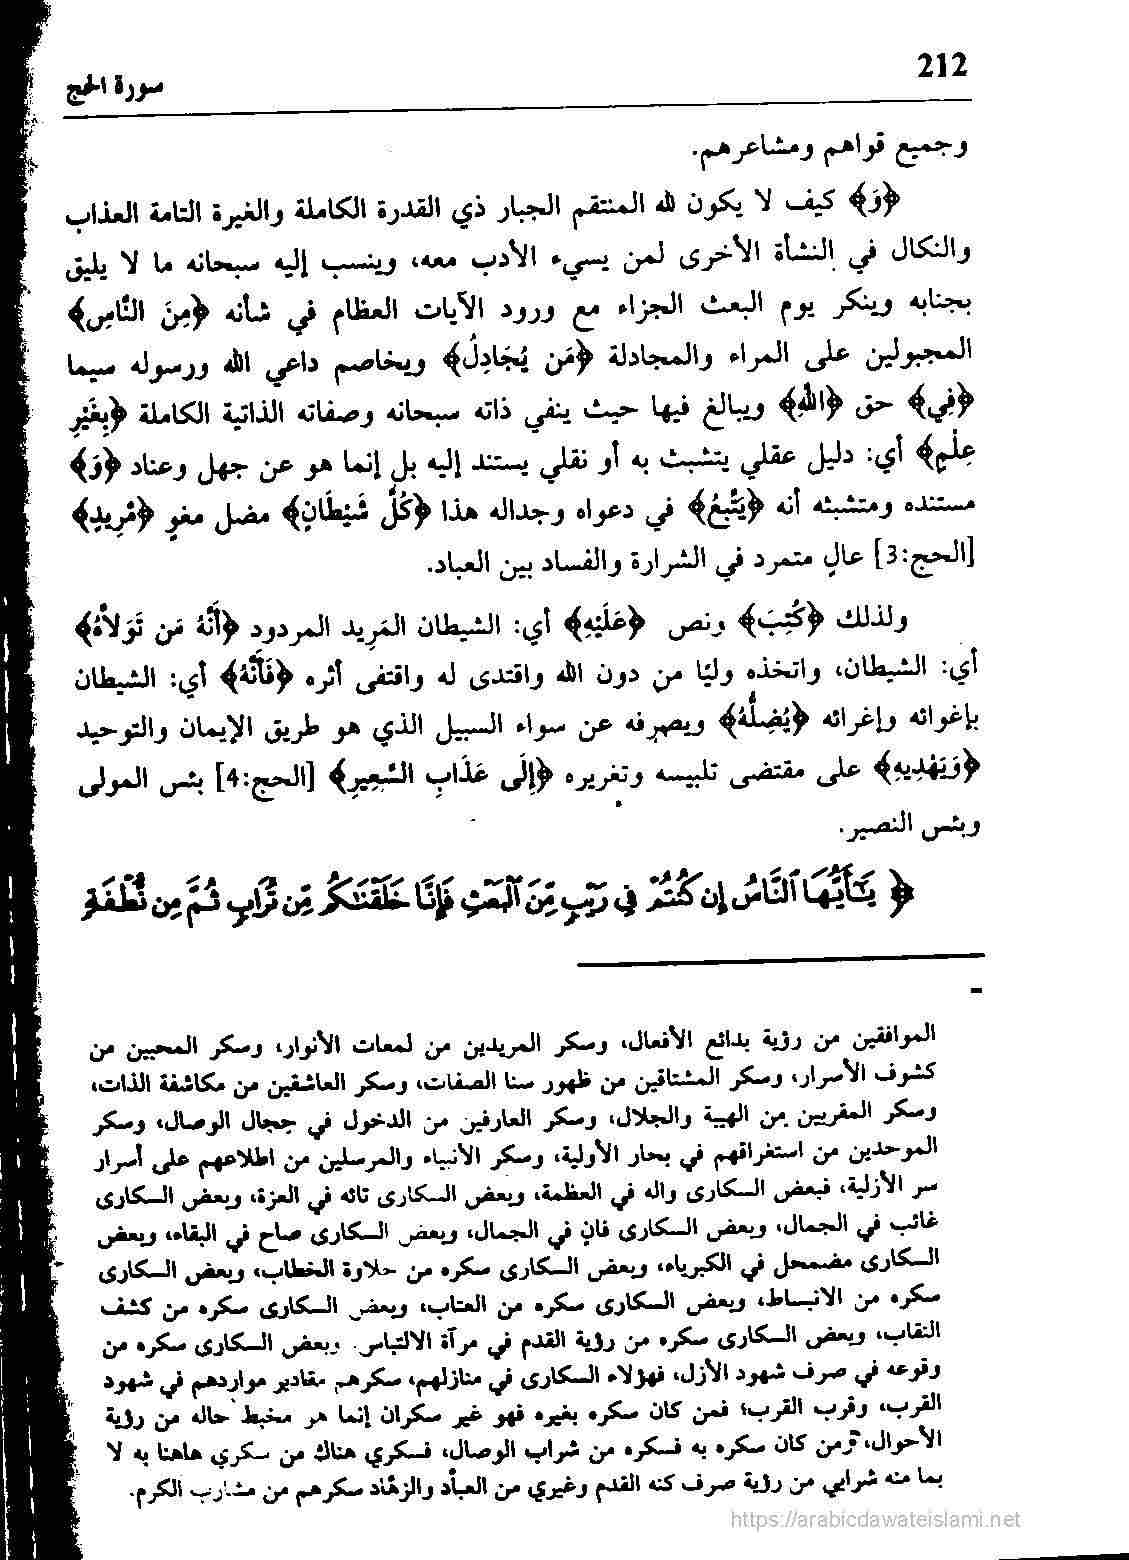 212
سورة الحج
وجميع قواهم ومشاعرهم.
﴿وَ﴾ كيف لا يكون لله المنتقم الجبار ذي القدرة الكاملة والغيرة التامة العذاب
والنكال في النشأة الأخرى لمن يسيء الأدب معه، وينسب إليه سبحانه ما لا يليق
بجنابه وينكر يوم البعث الجزاء مع ورود الآيات العظام في شأنه ﴿مِنَ النَّاسِ﴾
المجبولين على المراء والمجادلة ﴿مَن يُجَادِلُ﴾ ويخاصم داعي الله ورسوله سيما
﴿فِي﴾ حق ﴿اللهِ﴾ ويبالغ فيها حيث ينفي ذاته سبحانه وصفاته الذاتية الكاملة ﴿بِغَيْرِ
عِلْمٍ﴾ أي: دليل عقلي يتشبث به أو نقلي يستند إليه بل إنما هو عن جهل وعناد ﴿وَ﴾
مستنده ومتشبثه أنه ﴿يَتَّبِعُ﴾ في دعواه وجداله هذا ﴿كُلَّ شَيْطَانٍ﴾ مضل مغوٍ ﴿مَّرِيدٍ﴾
[الحج:3] عالٍ متمرد في الشرارة والفساد بين العباد.
ولذلك ﴿كُتِبَ﴾ ونص ﴿عَلَيْهِ﴾ أي: الشيطان المَرِيد المردود ﴿أَنَّهُ مَن تَوَلاَّهُ﴾
أي: الشيطان، واتخذه وليًا من دون الله واقتدى له واقتفى أثره ﴿فَأَنَّهُ﴾ أي: الشيطان
بإغوائه وإغرائه ﴿يُضِلُّهُ﴾ ويصرفه عن سواء السبيل الذي هو طريق الإيمان والتوحيد
﴿وَيَهْدِيهِ﴾ على مقتضى تلبيسه وتغريره ﴿إِلَى عَذَابِ السَّعِيرِ﴾ [الحج:4] بئس المولى
وبئس النصير.
﴿ يَـٰٓأَيُّهَا ٱلنَّاسُ إِن كُنتُمْ فِى رَيْبٍ مِّنَ ٱلْبَعْثِ فَإِنَّا خَلَقْنَـٰكُم مِّن تُرَابٍ ثُمَّ مِن نُّطْفَةٍ
=
الموافقين من رؤية بدائع الأفعال، وسكر المريدين من لمعات الأنوار، وسكر المحبين من
كشوف الأسرار، وسكر المشتاقين من ظهور سنا الصفات، وسكر العاشقين من مكاشفة الذات،
وسكر المقربين من الهيبة والجلال، وسكر العارفين من الدخول في حجال الوصال، وسكر
الموحدين من استغراقهم في بحار الأولية، وسكر الأنبياء والمرسلين من اطلاعهم على أسرار
سر الأزلية، فبعض السكارى واله في العظمة، وبعض السكارى تائه في العزة، وبعض السكارى
غائب في الجمال، وبعض السكارى فانٍ في الجمال، وبعض السكارى صاح في البقاء، وبعض
السكارى مضمحل في الكبرياء، وبعض السكارى سكره من حلاوة الخطاب، وبعض السكارى
سكره من الانبساط، وبعض السكارى سكره من العتاب، وبعض السكارى سكره من كشف
النقاب، وبعض السكارى سكره من رؤية القدم في مرآة الالتباس. وبعض السكارى سكره من
وقوعه في صرف شهود الأزل، فهؤلاء السكارى في منازلهم، سكرهم مقادير مواردهم في شهود
القرب، وقرب القرب؛ فمن كان سكره بغيره فهو غير سكران إنما هو مخبط حاله من رؤية
الأحوال، ومن كان سكره به فسكره من شراب الوصال، فسكري هناك من سكري هاهنا به لا
بما منه شرابي من رؤية صرف كنه القدم وغيري من العبَّاد والزهَّاد سكرهم من مشارب الكرم.
https://arabicdawateislami.net